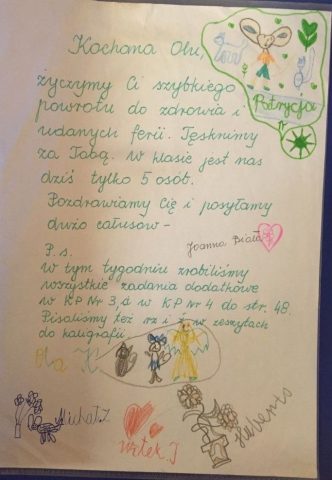 Kochana Olu,
Patrycja
życzymy Ci szybkiego
powrotu do zdrowia i
udanych ferii. Tęsknimy
za Tobą. W klasie jest nas
dziś tylko 5 osób.
Pozdrawiamy Cię i posyłamy
dużo całusów –
Joanna Biała
P.s.
W tym tygodniu zrobiliśmy
wszystkie zadania dodatkowe
w KP Nr 3, a w KP Nr 4 do str. 48.
Pisaliśmy też rz i ż w zeszytach
do kaligrafii.
Ola K
Michał Z
Witek J
Huberto